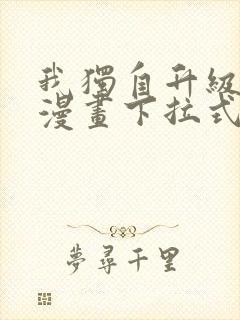 我獨自升級
漫畫下拉式
夢尋千里